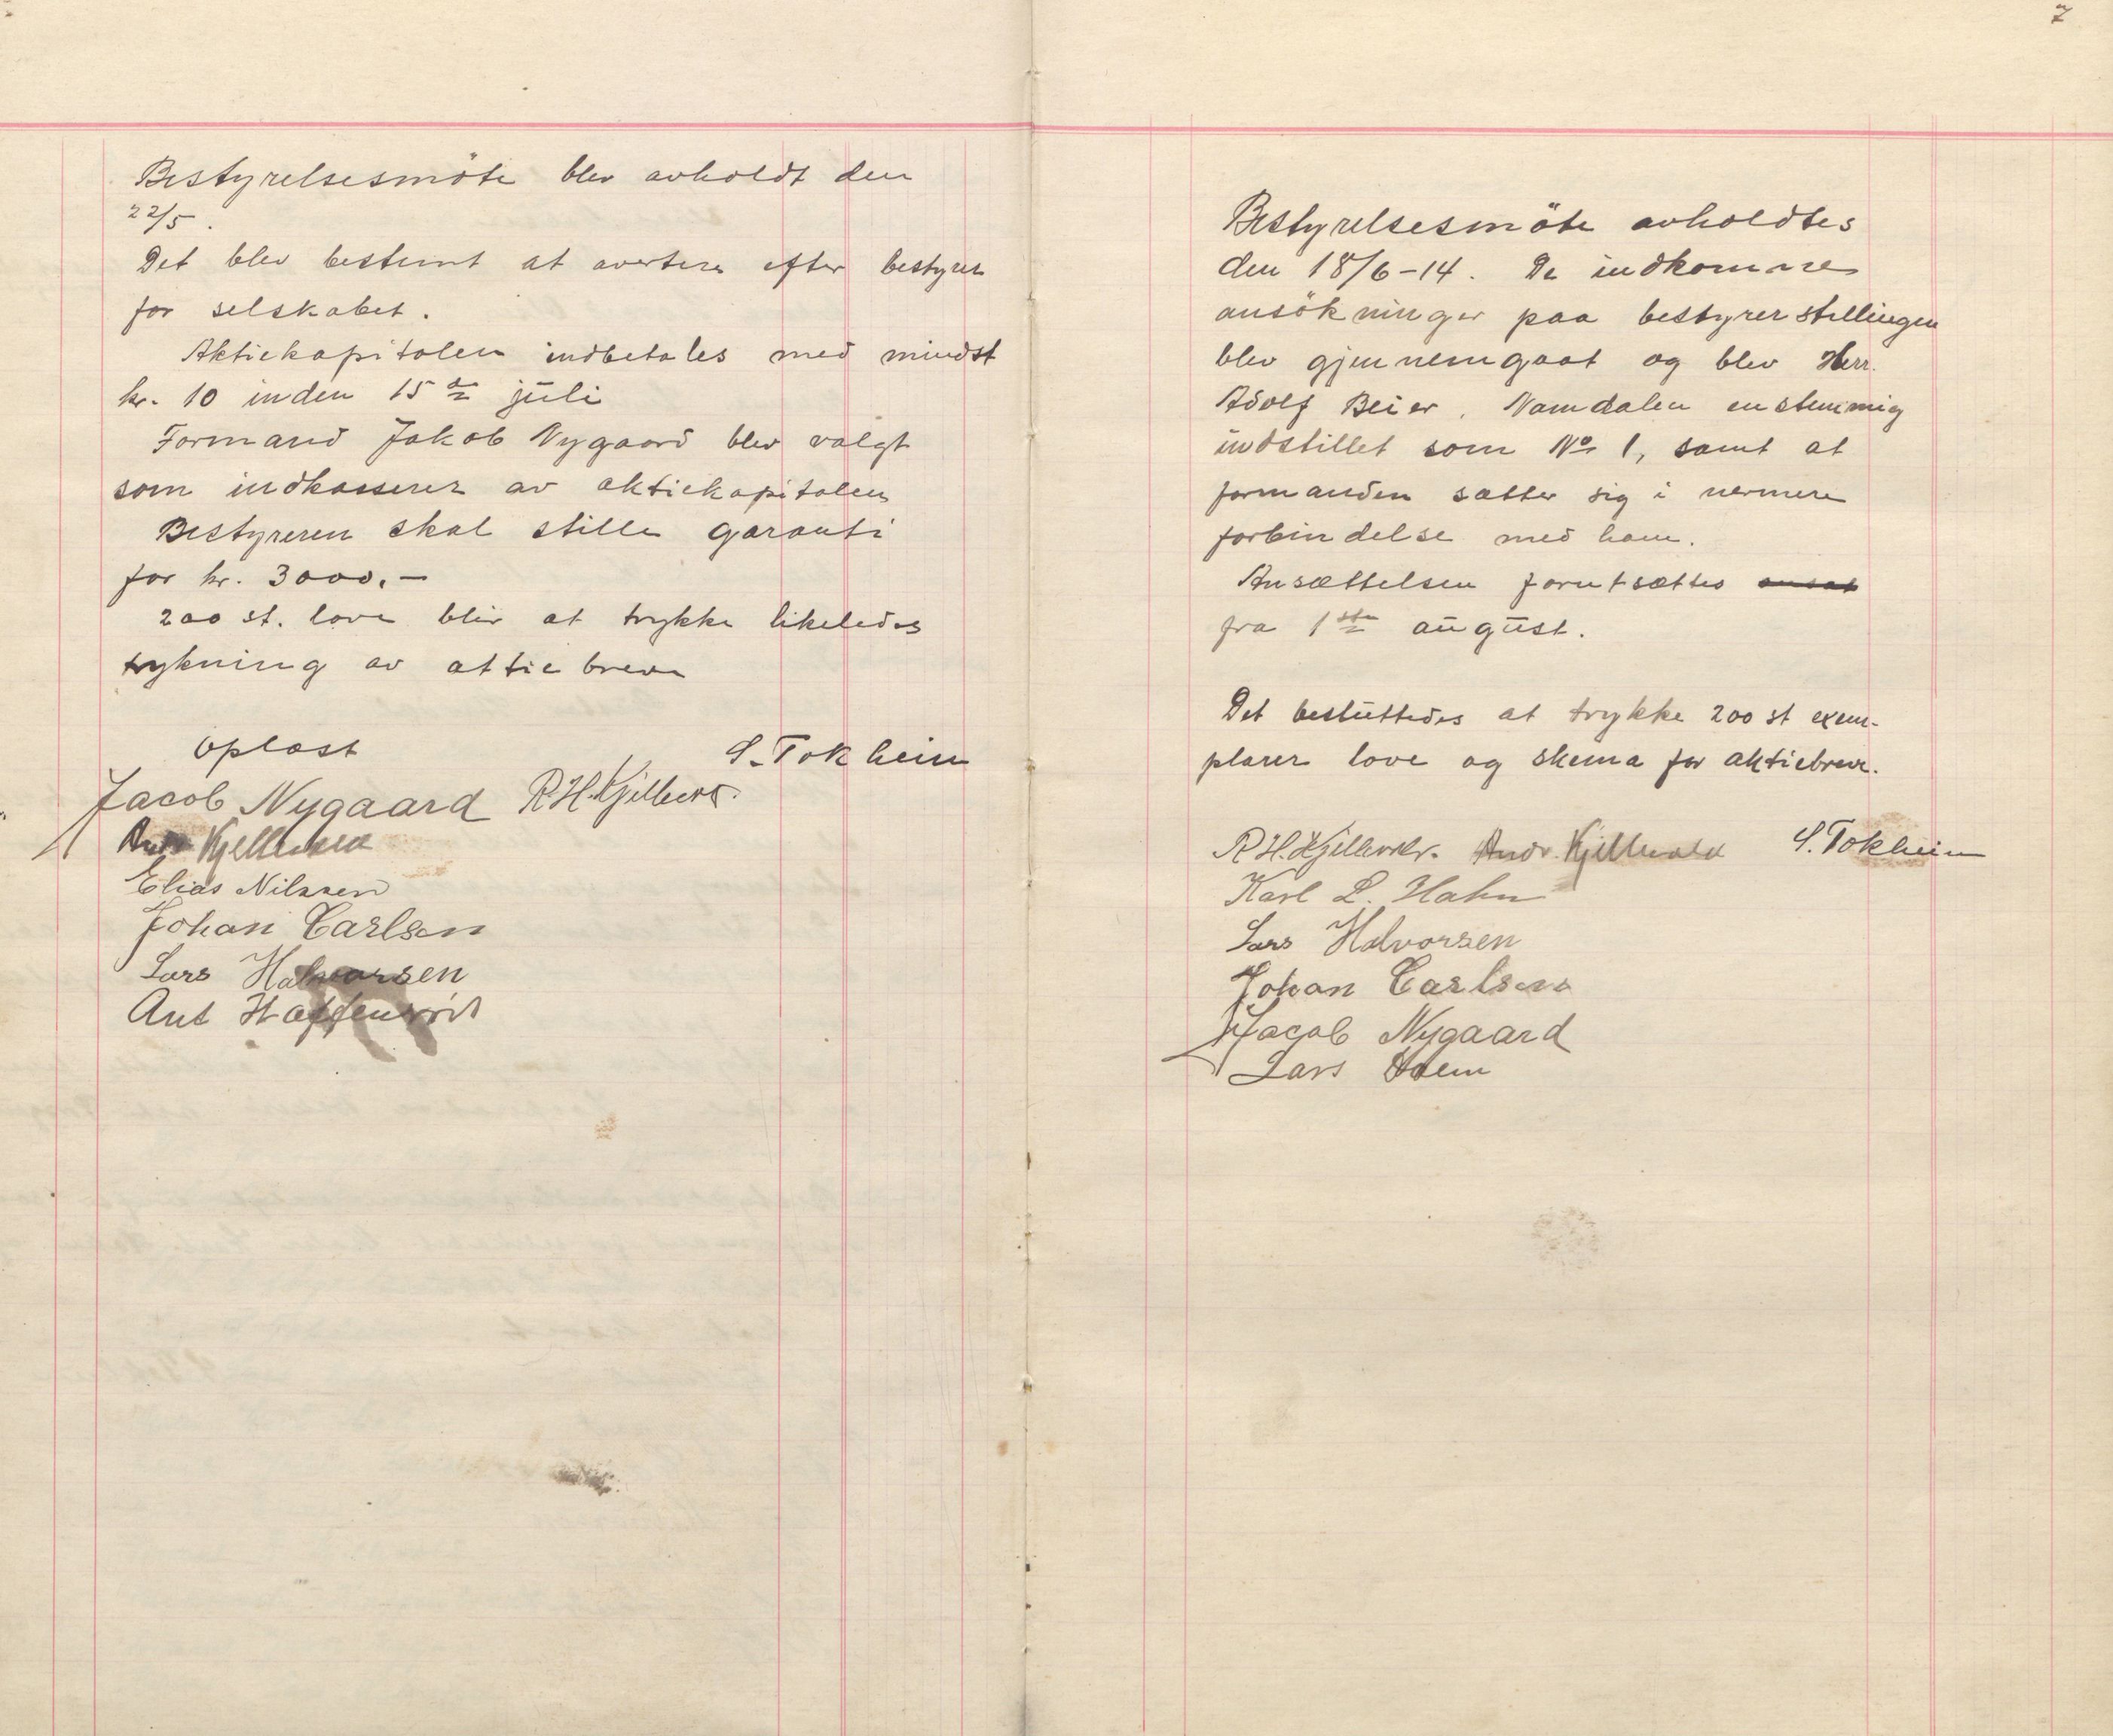 Bestyrelsesmöte blev avholdt den
22/5.
Det blev bestemt at avertere efter bestyrer
for selskabet.
Aktiekapitalen indbetales med mindst
kr. 10 inden 15de juli
Formand Jakob Nygaard blev valgt
som indkasserer av aktiekapitalen
Bestyreren skal stille garanti
for kr. 3000.-
200 st. love blir at trykke likeledes
trykning av aktie breve
Oplæst
S. Tokheim
Jacob Nygaard R.H.
Elias Nilssen
Johan Carlsen
Lars Halvorsen
Ant
7
Bestyrelsesmöte avholdtes
den 18/6-14. De indkomne
ansökninger paa bestyrerstillingen
blev gjennemgaat og blev Herr.
Adolf Beier, Namdalen enstemmig
indstillet som No 1, samt at
formanden sætter sig i nermere
forbindelse med ham.
Ansættelsen forutsættes
fra 1ste august.
Det besluttedes at trykke 200 st exem-
plarer love og skema for aktiebreve.
R.H. Andr. S. Tokheim
Karl L. Hahn
Lars Halvorsen
Johan Carlsen
Jacob Nygaard
Lars